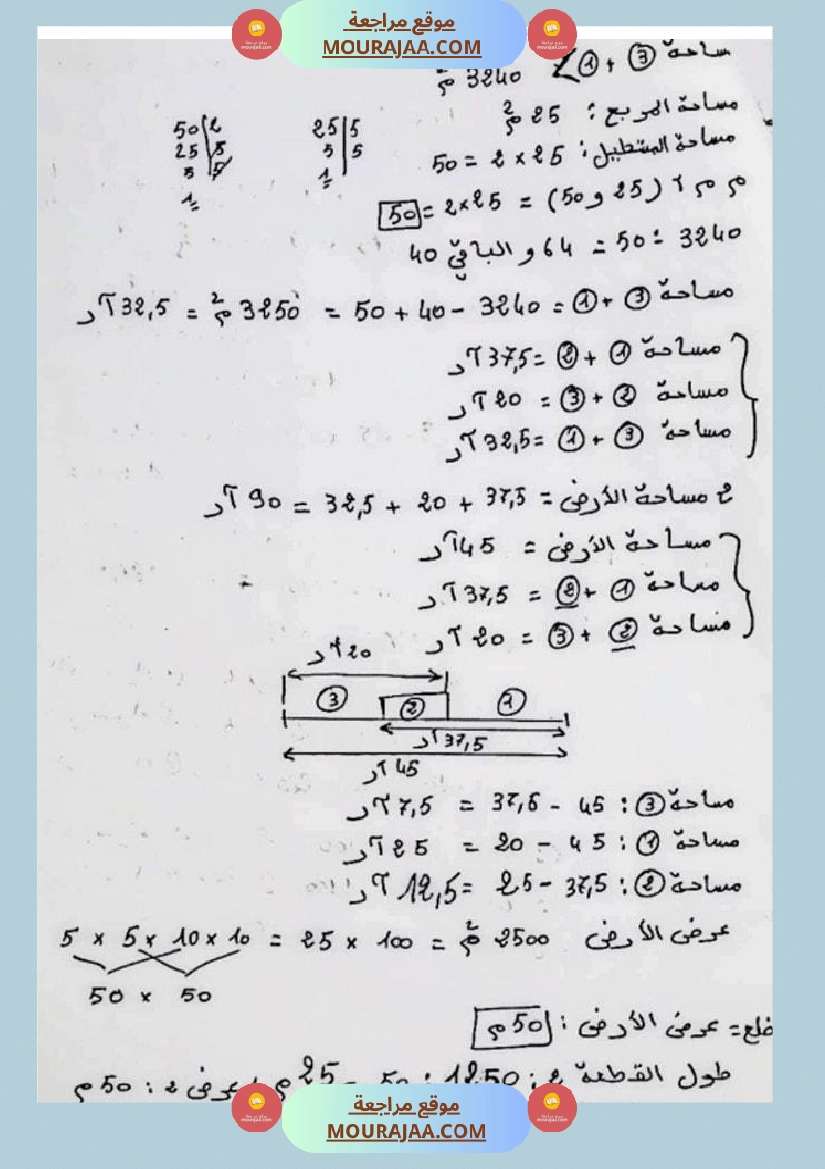 موقع مراجعة
MOURAJAA.COM
مساحة ③ + ① > 3240 م²
مساحة المربع : 25 م²
مساحة المستطيل : 25 × 2 = 50
50 | 2
25 | 5
5 | 5
1
25 | 5
5 | 5
1
م م م أ (25 و 50) = 25×2 = 50
3240 ÷ 50 = 64 و الباقي 40
مساحة ③ + ① = 3240 - 40 + 50 = 3250 م² = 32,5 آر
مساحة ① + ② = 37,5 آر
مساحة ② + ③ = 20 آر
مساحة ③ + ① = 32,5 آر
2 مساحة الأرض = 37,5 + 20 + 32,5 = 90 آر
مساحة الأرض = 45 آر
مساحة ① + ② = 37,5 آر
مساحة ② + ③ = 20 آر
20 آر
③ ② ①
37,5 آر
45 آر
مساحة ③ : 45 - 37,5 = 7,5 آر
مساحة ① : 45 - 20 = 25 آر
مساحة ② : 37,5 - 25 = 12,5 آر
عرض الأرض 2500 م² = 100 × 25 = 10 × 10 × 5 × 5
50 × 50
ضلع = عرض الأرض : 50 م
طول القطعة 2 : 1250 : 50 = 25 م / عرض 2 : 50 م
موقع مراجعة
MOURAJAA.COM